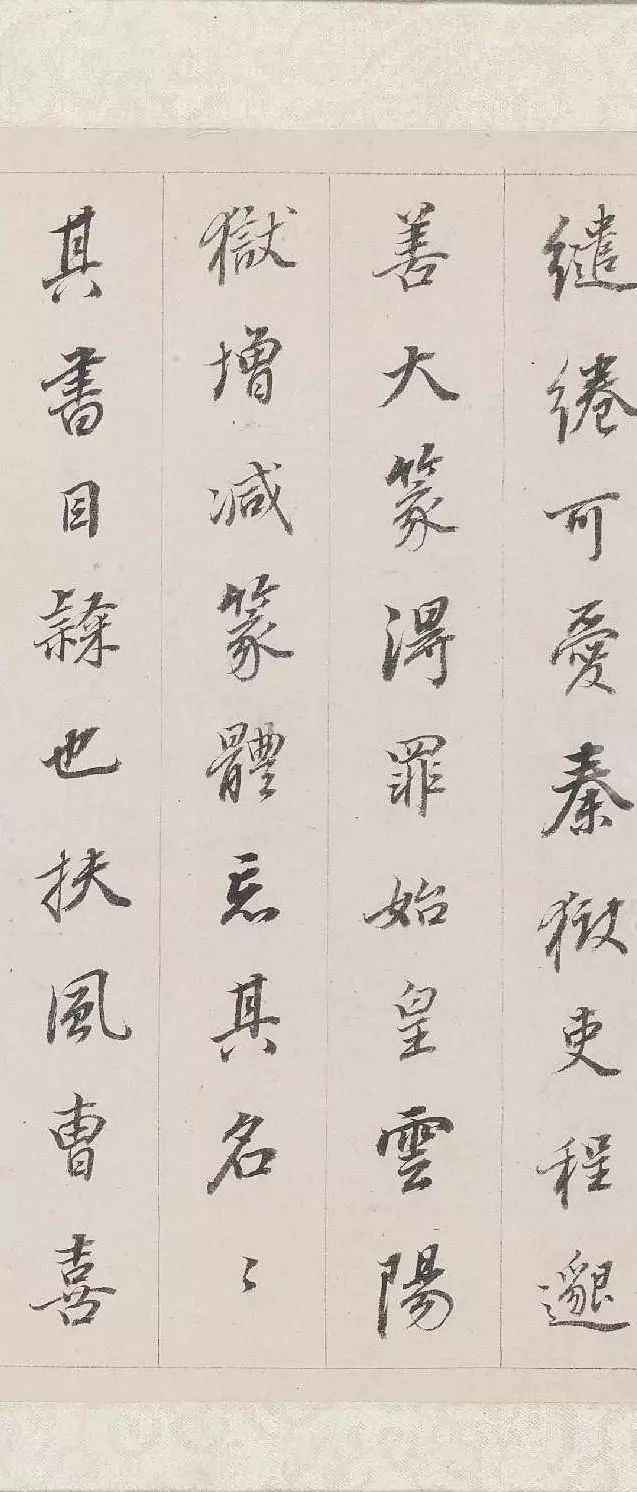 繾綣可愛秦獄吏程邈
善大篆得罪始皇雲陽
獄增減篆體忘其名〻
其書目隸也扶風曹喜